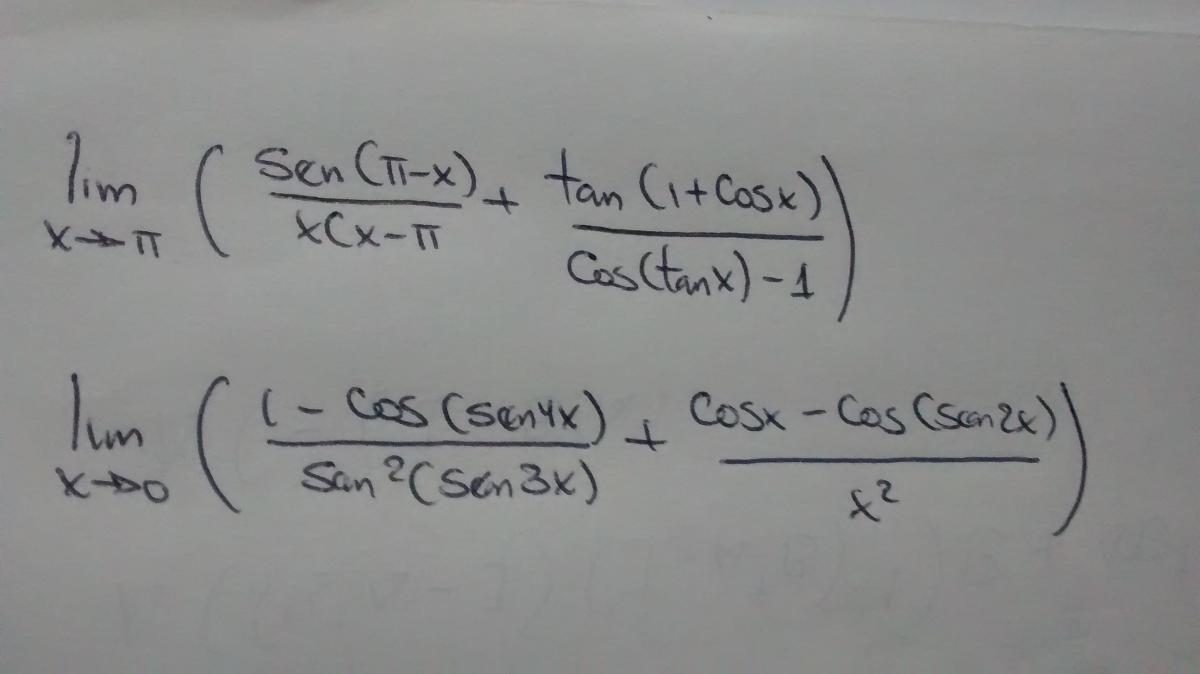 lim x→π ( sen(π-x) / x(x-π + tan(1+cosx) / cos(tanx)-1 )
lim x→0 ( 1-cos(sen4x) / san²(sen3x) + cosx-cos(sen2x) / x² )